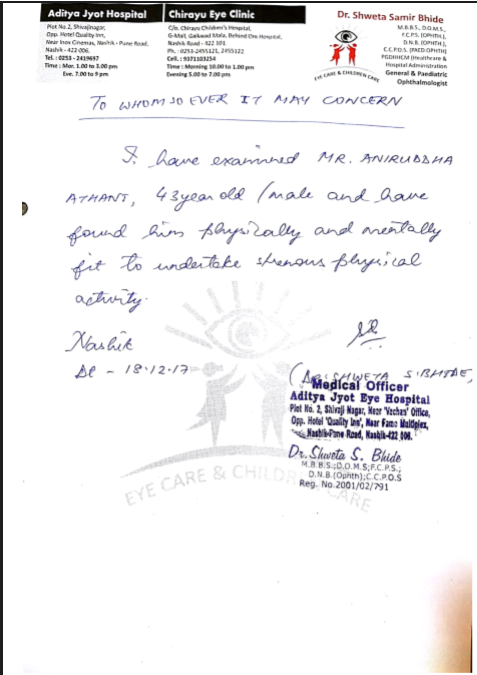 Aditya Jyot Hospital
Plot No.2, Shivajinagar,
Opp. Hotel Quality Inn,
Near Inox Cinemas, Nashik - Pune Road,
Nashik - 422 006.
Tel. : 0253 - 2419697
Time : Mor. 1.00 to 3.00 pm
Eve. 7.00 to 9 pm
Chirayu Eye Clinic
C/o. Chirayu Children's Hospital,
G-Mall, Gaikwad Mala, Behind Om Hospital,
Nashik Road - 422 101
Ph. : 0253-2455121, 2455122
Cell. : 9371103254
Time : Morning 10.00 to 1.00 pm
Evening 5.00 to 7.00 pm
EYE CARE & CHILDREN CARE
Dr. Shweta Samir Bhide
M.B.B.S., D.O.M.S.,
F.C.P.S. (OPHTH.),
D.N.B. (OPHTH.),
C.C.P.O.S. (PAED.OPHTH)
PGDHHCM (Healthcare &
Hospital Administration
General & Paediatric
Ophthalmologist
TO WHOM SO EVER IT MAY CONCERN
I have examined MR. ANIRUDDHA
ATHANI, 43 year old / male and have
found him physically and mentally
fit to undertake strenous physical
activity.
Nashik
Dt - 18-12-17
(DR. SHWETA S. BHIDE)
Medical Officer
Aditya Jyot Eye Hospital
Plot No. 2, Shivaji Nagar, Near 'Vachan' Office,
Opp. Hotel 'Quality Inn', Near Fame Multiplex,
Nashik-Pune Road, Nashik-422 006.
Dr. Shweta S. Bhide
M.B.B.S.;D.O.M.S;F.C.P.S.;
D.N.B.(Ophth);C.C.P.O.S
Reg. No.2001/02/791
EYE CARE & CHILDREN CARE